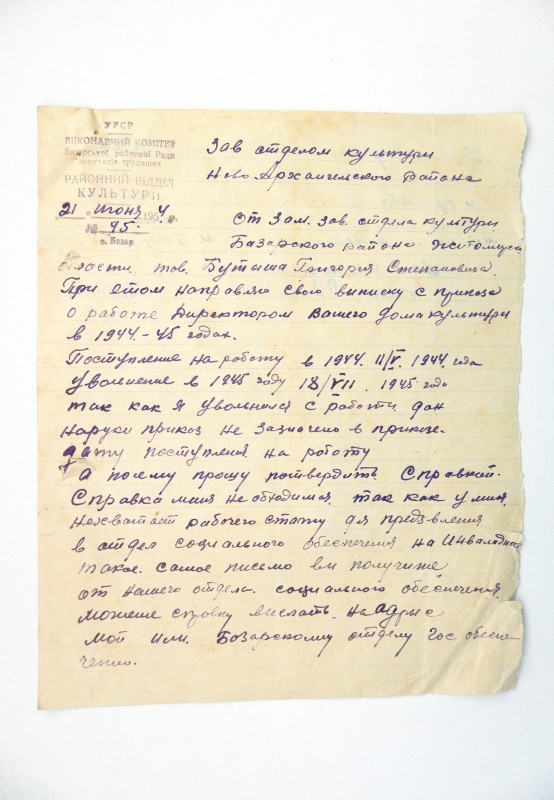 УРСР
ВИКОНАВЧИЙ КОМІТЕТ
Базарської районної Ради
депутатів трудящих
РАЙОННИЙ ВІДДІЛ
КУЛЬТУРИ
21 июня 1954 р.
№ 95.
с. Базар
Зав отделом культури
Ново Архангельского Района
от Зам. Зав. отдела культури
Базарского района Житомирск
области тов. Буташа Григория Степановича.
При етом направляю свою виписку с приказа
о работе Директором Вашего дома культури
в 1944.-45 годах.
Поступление на роботу в 1944. 11/V. 1944. года
Увольнение в 1945 году 18/VII. 1945 года
так как я Увольнился с работи дан
наруки приказ не Зазначено в приказе.
дату поступления на роботу
а посему прошу потвердить Справкой.
Справка меня необходимоя так как у меня
нехватает рабочего стажу для
в отдел социального обеспечения на Инвалидност
такое. самое писмо ви получите
от нашего отдела. социального обеспечения.
можете справку вислать на адрес
мой или. Бозарскому отделу гос обеспе
чению.